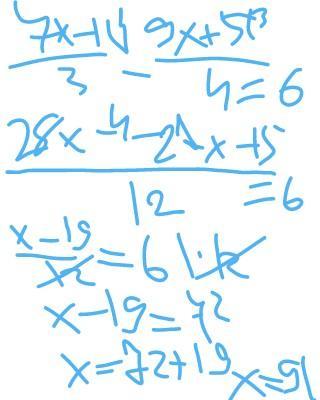 7x-1 4 9x+5 3
3 - 4 = 6
28x-4-27x+15
12 = 6
x-19
12 = 6 | · 12
x-19=72
x=72+19 x=91